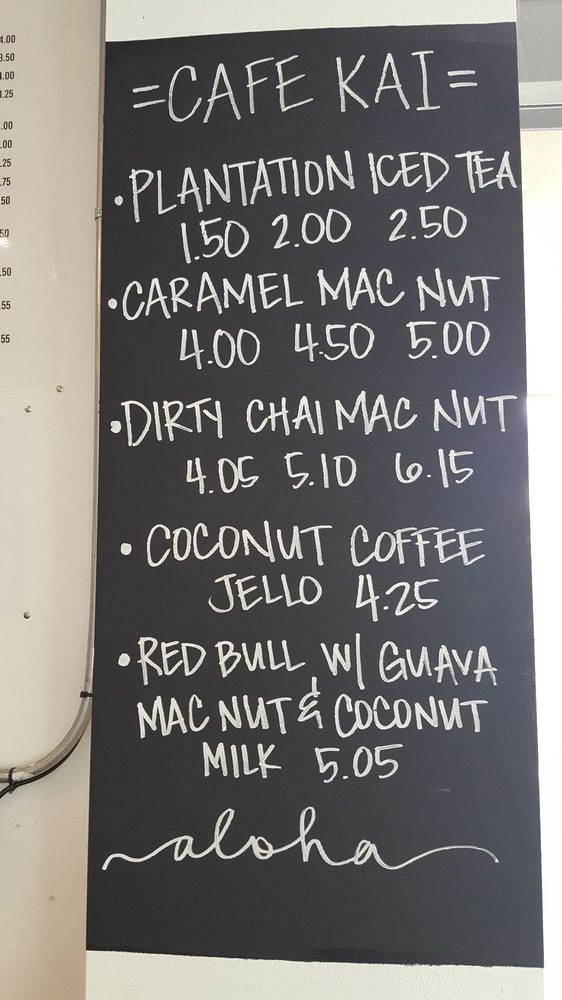 =CAFE KAI=
•PLANTATION ICED TEA
1.50 2.00 2.50
•CARAMEL MAC NUT
4.00 4.50 5.00
•DIRTY CHAI MAC NUT
4.05 5.10 6.15
• COCONUT COFFEE
JELLO 4.25
•RED BULL W/ GUAVA
MAC NUT & COCONUT
MILK 5.05
aloha